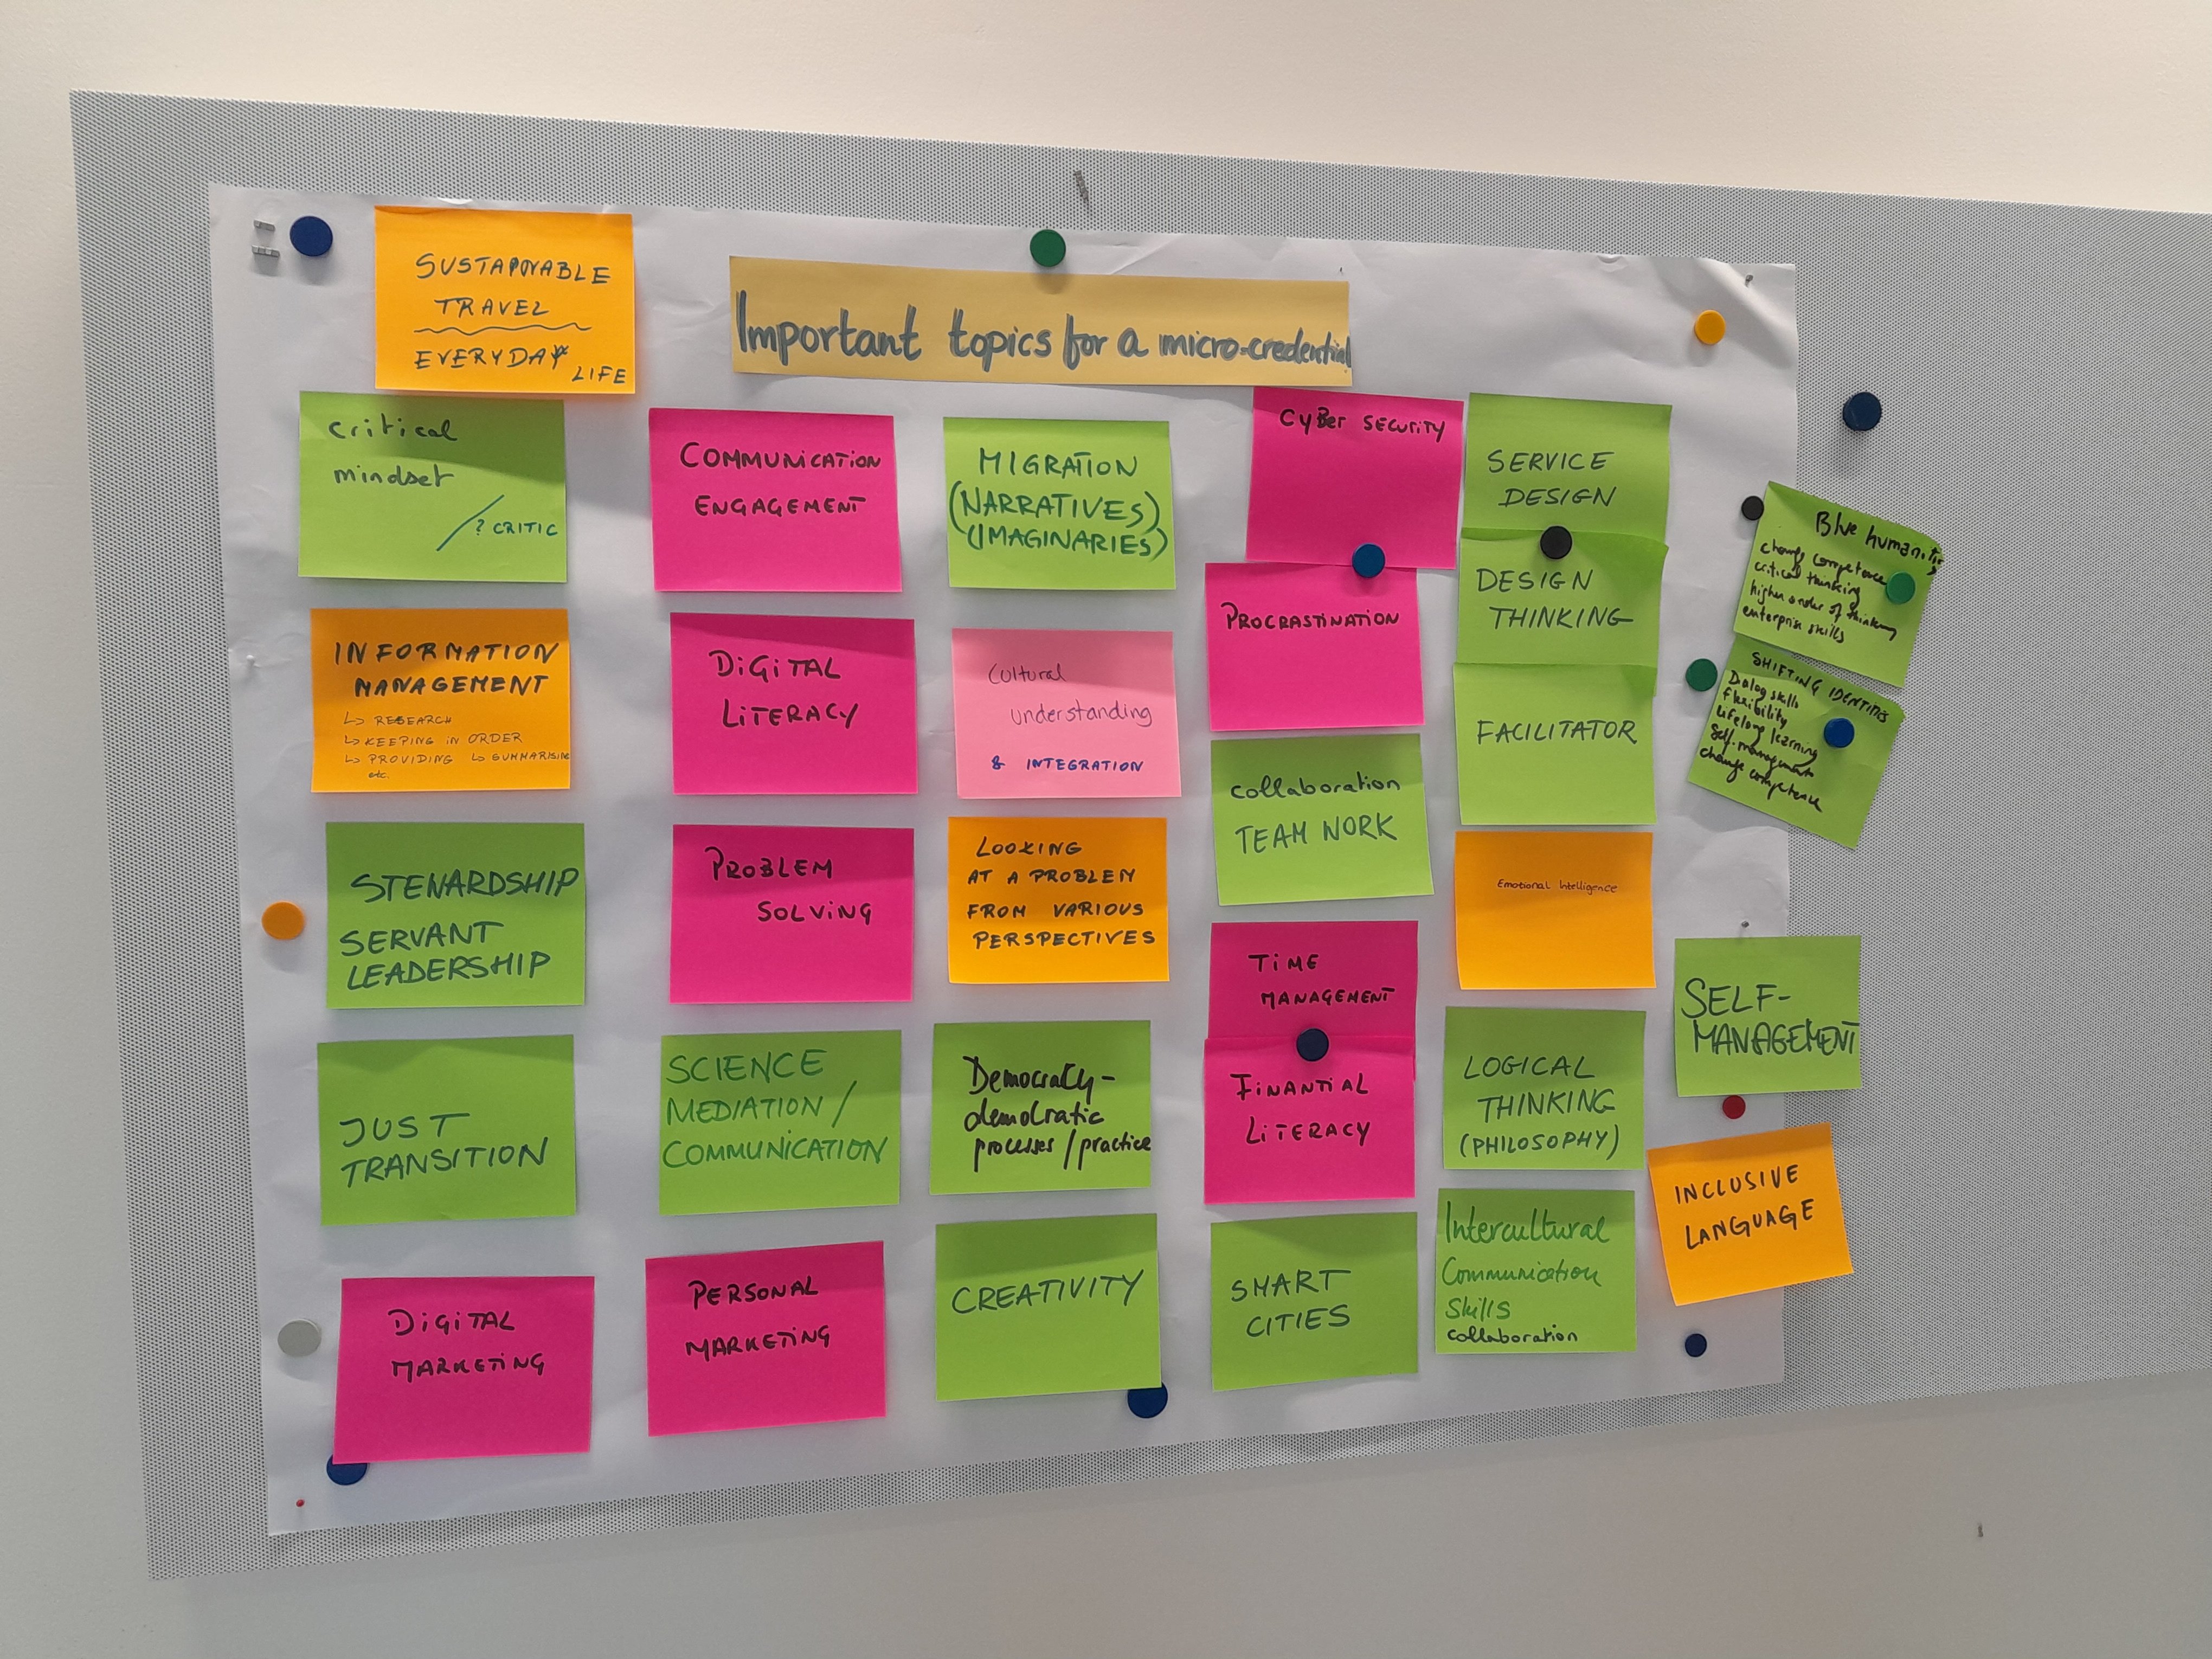 SUSTAINABLE
TRAVEL
EVERYDAY
LIFE
Important topics for a micro-credential
critical
mindset
/ ? CRITIC
COMMUNICATION
ENGAGEMENT
MIGRATION
(NARRATIVES)
(IMAGINARIES)
CyBer SECURITY
SERVICE
DESIGN
Blue humanities
change competence
critical thinking
higher order of thinking
enterprise skills
INFORMATION
MANAGEMENT
↳ RESEARCH
↳ KEEPING IN ORDER
↳ PROVIDING ↳ SUMMARISING
etc.
DIGITAL
LITERACY
Cultural
understanding
& INTEGRATION
PROCRASTINATION
DESIGN
THINKING
SHIFTING IDENTITIES
Dialog skills
flexibility
lifelong learning
Self-management
change competence
FACILITATOR
STENARDSHIP
SERVANT
LEADERSHIP
PROBLEM
SOLVING
LOOKING
AT A PROBLEM
FROM VARIOUS
PERSPECTIVES
collaboration
TEAM WORK
Emotional Intelligence
JUST
TRANSITION
SCIENCE
MEDIATION /
COMMUNICATION
Democracy-
democratic
processes / practice
TIME
MANAGEMENT
FINANTIAL
LITERACY
LOGICAL
THINKING
(PHILOSOPHY)
SELF-
MANAGEMENT
DIGITAL
MARKETING
PERSONAL
MARKETING
CREATIVITY
SMART
CITIES
Intercultural
Communication
Skills
collaboration
INCLUSIVE
LANGUAGE